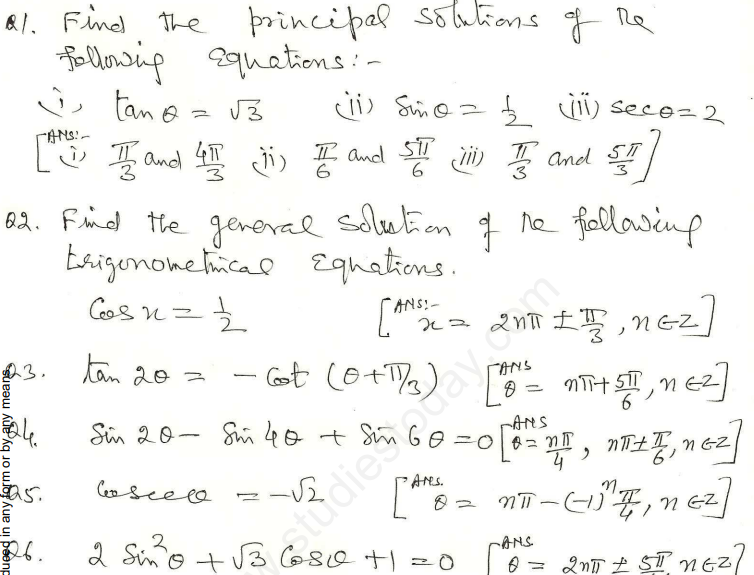 Q1. Find the principal solutions of the
following equations:-
(i) tan θ = √3 (ii) Sin θ = 1/2 (iii) sec θ = 2
[ANS:- (i) π/3 and 4π/3 (ii) π/6 and 5π/6 (iii) π/3 and 5π/3]
Q2. Find the general solution of the following
trigonometrical equations.
Cos x = 1/2 [ANS:- x = 2nπ ± π/3, n∈Z]
Q3. tan 2θ = - Cot (θ+π/3) [ANS θ = nπ+5π/6, n∈Z]
Q4. Sin 2θ - Sin 4θ + Sin 6θ = 0 [ANS θ = nπ/4, nπ±π/6, n∈Z]
Q5. Cosec θ = -√2 [ANS. θ = nπ-(-1)^n π/4, n∈Z]
Q6. 2 Sin²θ + √3 Cos θ + 1 = 0 [ANS θ = 2nπ ± 5π n∈Z]
duced in any form or by any means.
w.studiestoday.com